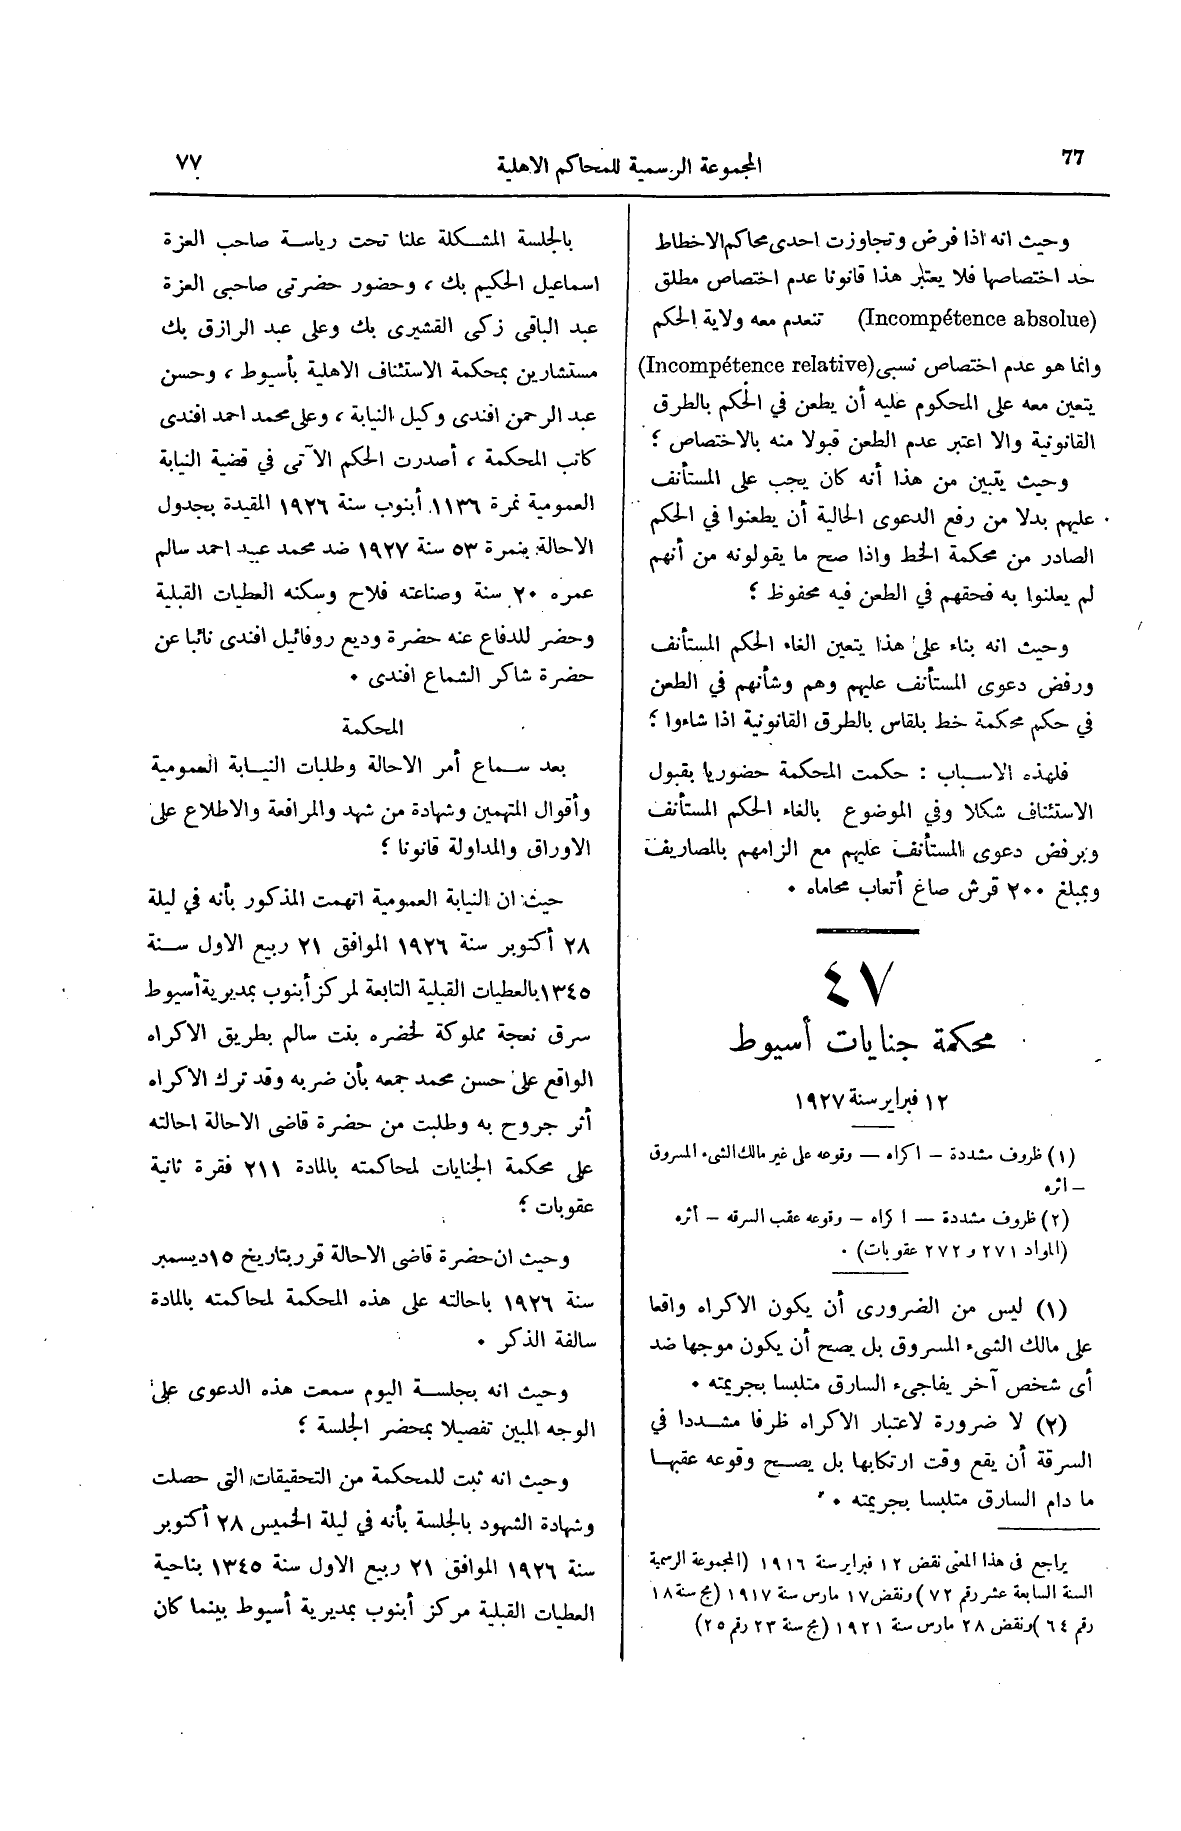 77
المجموعة الرسمية للمحاكم الاهلية
٧٧
وحيث انه اذا فرض وتجاوزت احدى محاكم الاخطاط
حد اختصاصها فلا يعتبر هذا قانونا عدم اختصاص مطلق
(Incompétence absolue) تنعدم معه ولاية الحكم
وانما هو عدم اختصاص نسبى (Incompétence relative)
يتعين معه على المحكوم عليه أن يطعن في الحكم بالطرق
القانونية والا اعتبر عدم الطعن قبولا منه بالاختصاص ؛
وحيث يتبين من هذا أنه كان يجب على المستأنف
عليهم بدلا من رفع الدعوى الحالية أن يطعنوا في الحكم
الصادر من محكمة الخط واذا صح ما يقولونه من أنهم
لم يعلنوا به فحقهم في الطعن فيه محفوظ ؛
وحيث انه بناء على هذا يتعين الغاء الحكم المستأنف
ورفض دعوى المستأنف عليهم وهم وشأنهم في الطعن
في حكم محكمة خط بلقاس بالطرق القانونية اذا شاءوا ؛
فلهذه الاسباب : حكمت المحكمة حضوريا بقبول
الاستئناف شكلا وفي الموضوع بالغاء الحكم المستأنف
وبرفض دعوى المستأنف عليهم مع الزامهم بالمصاريف
وبمبلغ ٢٠٠ قرش صاغ أتعاب محاماه ٠
٤٧
محكمة جنايات أسيوط
١٢ فبراير سنة ١٩٢٧
(١) ظروف مشددة – اكراه – وقوعه على غير مالك الشىء المسروق
– اثره
(٢) ظروف مشددة – اكراه – وقوعه عقب السرقه – أثره
(المواد ٢٧١ و ٢٧٢ عقوبات) ٠
(١) ليس من الضرورى أن يكون الاكراه واقعا
على مالك الشىء المسروق بل يصح أن يكون موجها ضد
أى شخص آخر يفاجىء السارق متلبسا بجريمته ٠
(٢) لا ضرورة لاعتبار الاكراه ظرفا مشددا في
السرقة أن يقع وقت ارتكابها بل يصح وقوعه عقبها
ما دام السارق متلبسا بجريمته ٠
يراجع فى هذا المعنى نقض ١٢ فبراير سنة ١٩١٦ (المجموعة الرسمية
السنة السابعة عشر رقم ٧٢) ونقض ١٧ مارس سنة ١٩١٧ (مج سنة ١٨
رقم ٦٤) ونقض ٢٨ مارس سنة ١٩٢١ (مج سنة ٢٣ رقم ٢٥)
بالجلسة المشكلة علنا تحت رياسة صاحب العزة
اسماعيل الحكيم بك ، وحضور حضرتى صاحبى العزة
عبد الباقى زكى القشيرى بك وعلى عبد الرازق بك
مستشارين بمحكمة الاستئناف الاهلية بأسيوط ، وحسن
عبد الرحمن افندى وكيل النيابة ، وعلى محمد احمد افندى
كاتب المحكمة ، أصدرت الحكم الآتى في قضية النيابة
العمومية نمرة ١١٣٦ أبنوب سنة ١٩٢٦ المقيدة بجدول
الاحالة بنمرة ٥٣ سنة ١٩٢٧ ضد محمد عبيد احمد سالم
عمره ٢٠ سنة وصناعته فلاح وسكنه العطيات القبلية
وحضر للدفاع عنه حضرة وديع روفائيل افندى نائبا عن
حضرة شاكر الشماع افندى ٠
المحكمة
بعد سماع أمر الاحالة وطلبات النيابة العمومية
وأقوال المتهمين وشهادة من شهد والمرافعة والاطلاع على
الاوراق والمداولة قانونا ؛
حيث ان النيابة العمومية اتهمت المذكور بأنه في ليلة
٢٨ أكتوبر سنة ١٩٢٦ الموافق ٢١ ربيع الاول سنة
١٣٤٥ بالعطيات القبلية التابعة لمركز أبنوب بمديرية أسيوط
سرق نعجة مملوكة لخضره بنت سالم بطريق الاكراه
الواقع على حسن محمد جمعه بأن ضربه وقد ترك الاكراه
أثر جروح به وطلبت من حضرة قاضى الاحالة احالته
على محكمة الجنايات لمحاكمته بالمادة ٢١١ فقرة ثانية
عقوبات ؛
وحيث ان حضرة قاضى الاحالة قرر بتاريخ ١٥ ديسمبر
سنة ١٩٢٦ باحالته على هذه المحكمة لمحاكمته بالمادة
سالفة الذكر ٠
وحيث انه بجلسة اليوم سمعت هذه الدعوى على
الوجه المبين تفصيلا بمحضر الجلسة ؛
وحيث انه ثبت للمحكمة من التحقيقات التى حصلت
وشهادة الشهود بالجلسة بأنه في ليلة الخميس ٢٨ أكتوبر
سنة ١٩٢٦ الموافق ٢١ ربيع الاول سنة ١٣٤٥ بناحية
العطيات القبلية مركز أبنوب بمديرية أسيوط بينما كان